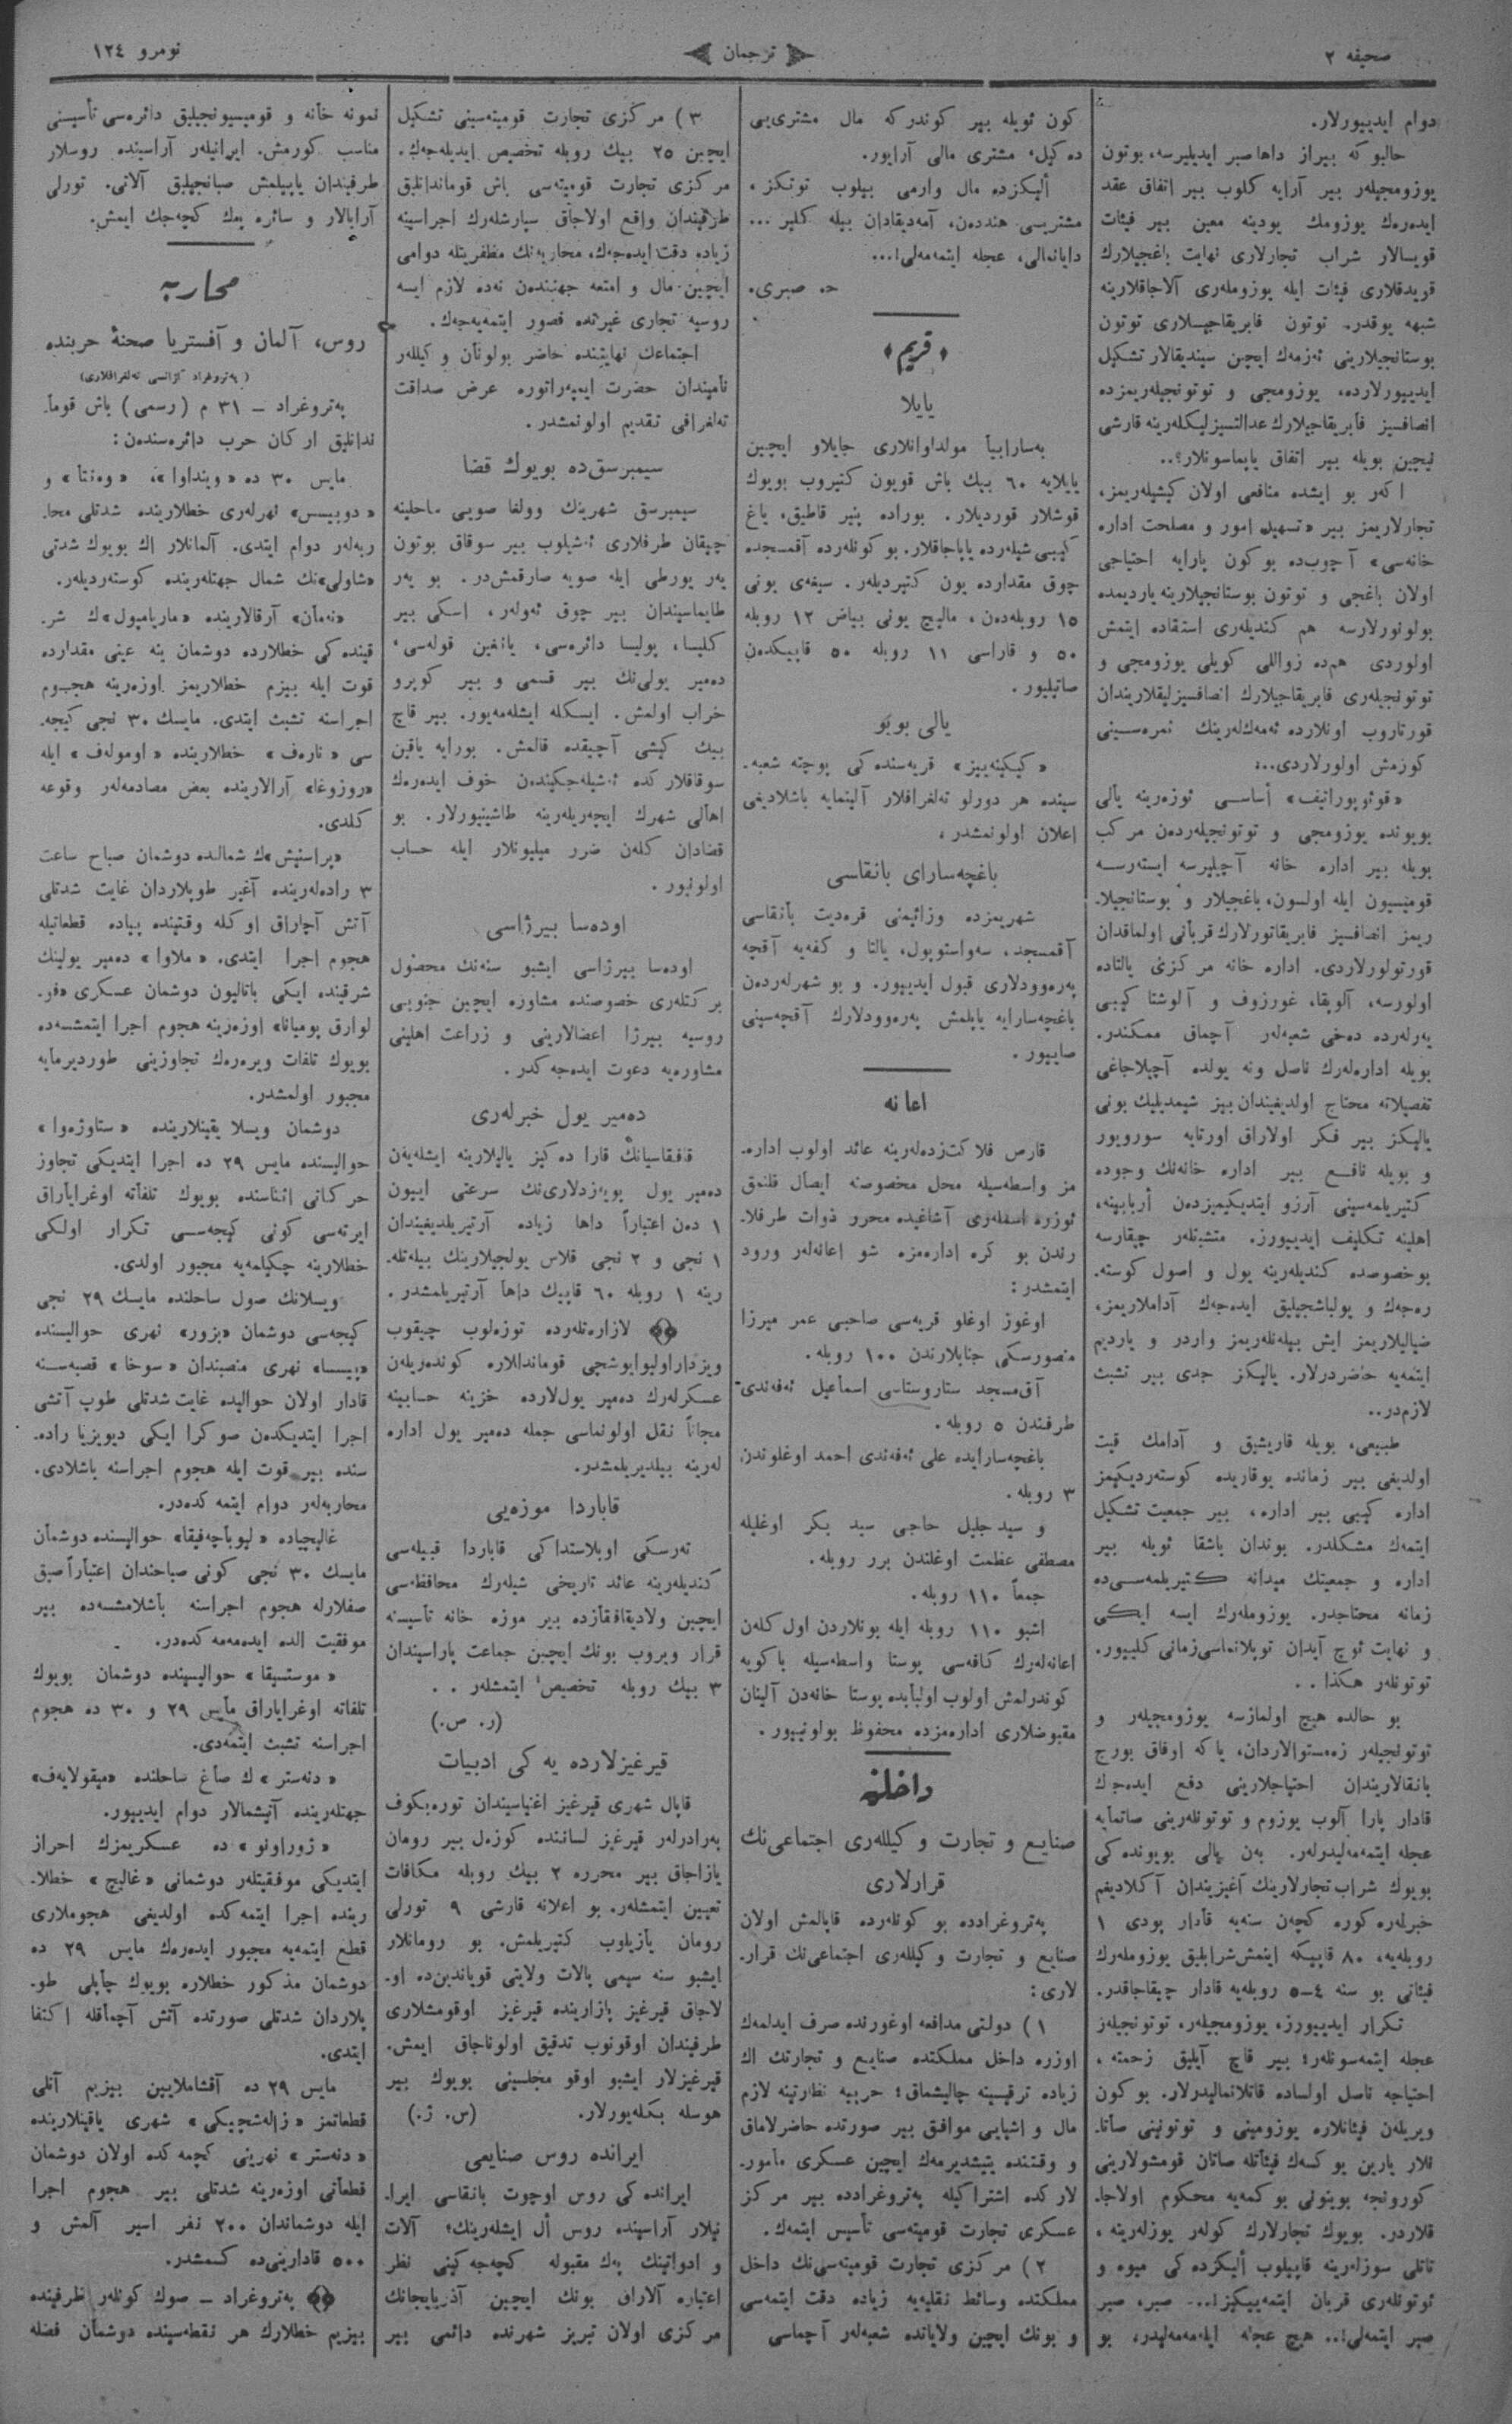 صحیفه ٢
ترجمان
نومرو ١٢٤
دوام ایدییورلار.
حالبو که بیراز داها صبر ایدیلیرسه، بوتون
یوزومجیلەر بیر آرایه کلوب بیر اتفاق عقد
ایدەرەك یوزومك پودینه معین بیر فیئات
قویسالار شراب تجارلاری نهایت باغجیلارك
قویدقلاری فیئات ایله یوزوملەری آلاجاقلارینه
شبهه یوقدر. توتون فابریقاجیلاری توتون
بوستانجیلارینی ئەزمەك ایچین سیندیقالار تشکیل
ایدییورلارده، یوزومجی و توتونجیلەریمزده
انصافسیز فابریقاجیلارك عدالتسیزلیکلەرینه قارشی
نیچین بویله بیر اتفاق یاپماسونلار؟..
اکەر بو ایشده منافعی اولان کیشیلەریمز،
تجارلاریمز بیر «تسهیل امور و مصلحت اداره
خانەسی» آچوب‌ده بو کون پارایه احتیاجی
اولان باغجی و توتون بوستانجیلارینه یاردیمده
بولونورلارسه هم کندیلەری استفاده ایتمش
اولوردی هم‌ده زواللی کویلی یوزومجی و
توتونجیلەری فابریقاجیلارك انصافسیزلیقلاریندان
قورتاروب اونلارده ئەمەك‌لەرینك ثمره‌سینی
کورمش اولورلاردی..
«قوئوپوراتیف» أساسی ئوزەرینه یالی
بویونده یوزومجی و توتونجیلەردەن مرکب
بویله بیر اداره خانه آچیلیرسه ایستەرسه
قومیسیون ایله اولسون، باغجیلار و بوستانجیلا-
ریمز انصافسیز فابریقاتورلارك قربانی اولماقدان
قورتولورلاردی. اداره خانه مرکزی یالتاده
اولورسه، آلوپقا، غورزوف و آلوشتا کیبی
یەرلەرده دەخی شعبەلەر آچماق ممکندر.
بویله ادارەلەرك ناصل ونه یولده آچیلاجاغی
تفصیلاته محتاج اولدیغیندان بیز شیمدیلیك بونی
یالیکز بیر فکر اولاراق اورتایه سورویور
و بویله نافع بیر اداره خانه‌نك وجوده
کتیریلمەسینی آرزو ایتدیکیمزدەن أربابینه،
اهلینه تکلیف ایدییورز. متشبثلەر چیقارسه
بوخصوصده کندیلەرینه یول و اصول کوسته-
رەجەك و یولباشجیلیق ایدەجەك آداملاریمز،
ضیالیلاریمز ایش بیلەنلەریمز واردر و یاردیم
ایتمەیه حاضردرلار. یالیکز جدی بیر تشبث
لازم‌در..
طبیعی، بویله قاریشیق و آدامك قیت
اولدیغی بیر زمانده یوقاریده کوستەردیکیمز
اداره کیبی بیر اداره، بیر جمعیت تشکیل
ایتمەك مشکلدر. بوندان باشقا ئویله بیر
اداره و جمعیتك میدانه کتیریلمەسی‌ده
زمانه محتاجدر. یوزوملەرك ایسه ایکی
و نهایت ئوچ آیدان توپلانماسی زمانی کلییور.
توتونلەر هکذا..
بو حالده هیچ اولمازسه یوزومجیلەر و
توتونجیلەر زەمستوالاردان، یاکه اوفاق بورج
بانقالاریندان احتیاجلارینی دفع ایدەجك
قادار پارا آلوب یوزوم و توتونلەرینی صاتمایه
عجله ایتمەمەلیدرلەر. بەن یالی بویونده کی
بویوك شراب تجارلارینك آغیزیندان آکلادیغم
خبرلەره کوره کچەن سنەیه قادار پودی ١
روبلەیه، ٨٠ قاپیکه ایتمش شرابلیق یوزوملەرك
فیئاتی بو سنه ٤–٥ روبلەیه قادار چیقاجاقدر.
تکرار ایدییورز، یوزومجیلەر، توتونجیلەر
عجله ایتمەسونلەر؛ بیر قاچ آیلیق زحمته،
احتیاجه ناصل اولساده قاتلانمالیدرلار. بو کون
ویریلەن فیئاتلاره یوزومینی و توتونینی صاتا-
نلار یارین یوکسەك فیئاتله صاتان قومشولارینی
کورونجه بوینونی بوکمەیه محکوم اولاجا-
قلاردر. بویوك تجارلارك کولەر یوزلەرینه،
تاتلی سوزلەرینه قاپیلوب ألیکزده کی میوه و
توتونلەری قربان ایتمەییکیز!.. صبر، صبر
صبر ایتمەلی!.. هیچ عجله ایتمەمەلیدر، بو
کون ئویله بیر کوندرکه مال مشتری‌یی
دەکیل، مشتری مالی آرایور.
ألیکزده مال وارمی بیلوب توتکز،
مشتریسی هنددەن، آمەریقادان بیله کلیر...
دایانمالی، عجله ایتمەمەلی!...
ح. صبری.
«قریم»
یایلا
بەسارابیا مولداوانلاری جایلاو ایچین
یایلایه ٦٠ بیك باش قویون کتیروب بویوك
قوشلار قوردیلار. بوراده پنیر قاطیق، یاغ
کیبی شیلەرده یاپاجاقلار. بو کونلەرده آقمسجده
چوق مقدارده یون کتیردیلەر. سیغەی یونی
١٥ روبلەدەن، مالیچ یونی بیاض ١٢ روبله
٥٠ و قاراسی ١١ روبله ٥٠ قاپیکدەن
صاتیلیور.
یالی بویو
«کیکینەییز» قریه‌سنده کی پوچته شعبه-
سینده هر دورلو تەلغرافلار آلینمایه باشلادیغی
اعلان اولونمشدر.
باغچه‌سارای بانقاسی
شهریمزده وزائیمنی قرەدیت بانقاسی
آقمسجد، سەواستوپول، یالتا و کفەیه آقچه
پەرەوودلاری قبول ایدییور. و بو شهرلەردەن
باغچەسارایه یاپلمش پەرەوودلارك آقچەسینی
صاییور.
اعانه
قارص فلاکتزدەلەرینه عائد اولوب اداره-
مز واسطه‌سیله محل مخصوصنه ایصال قلنمق
ئوزره اسملەری آشاغیده محرر ذوات طرفلا-
رندن بو کره ادارەمزه شو اعانەلەر ورود
ایتمشدر:
اوغوز اوغلو قریه‌سی صاحبی عمر میرزا
منصورسکی جنابلارندن ١٠٠ روبله.
آق‌مسجد ستاروستاسی اسماعیل ئەفەندی
طرفندن ٥ روبله.
باغچەسرایده علی ئەفەندی احمد اوغلوندن
٣ روبله.
و سید جلیل حاجی سید بکر اوغلیله
مصطفی عظمت اوغلندن برر روبله.
جمعاً ١١٠ روبله.
اشبو ١١٠ روبله ایله بونلاردن اول کلەن
اعانەلەرك کافه‌سی پوستا واسطه‌سیله باکویه
کوندرلمش اولوب اولبابده پوستا خانەدن آلینان
مقبوضلاری ادارەمزده محفوظ بولونییور.
داخلیه
صنایع و تجارت وکیللەری اجتماعی‌نك
قرارلاری
پەتروغرادده بو کونلەرده قاپالمش اولان
صنایع و تجارت وکیللەری اجتماعی‌نك قرار-
لاری:
١) دولتی مدافعه اوغورنده صرف ایدلمەك
اوزره داخل مملکتده صنایع و تجارتك اك
زیاده ترقیسینه چالیشماق؛ حربیه نظارتینه لازم
مال و اشیایی موافق بیر صورتده حاضرلاماق
و وقتنده یتیشدیرمەك ایچین عسکری مأمور-
لارکده اشتراکیله پەتروغرادده بیر مرکز
عسکری تجارت قومیته‌سی تأسیس ایتمەك.
٢) مرکزی تجارت قومیته‌سی‌نك داخل
مملکتده وسائط نقلیەیه زیاده دقت ایتمەسی
و بونك ایچین ولایاتده شعبەلەر آچماسی
٣) مرکزی تجارت قومیته‌سینی تشکیل
ایچین ٢٥ بیك روبله تخصیص ایدیلەجەك.
مرکزی تجارت قومیته‌سی باش قوماندانلیق
طرفیندان واقع اولاجاق سپارشلەرك اجراسینه
زیاده دقت ایدەجەك، محاربه‌نك مظفریتله دوامی
ایچین مال و امتعه جهتیندەن نەده لازم ایسه
روسیه تجاری غیرتده قصور ایتمەیەجەك.
اجتماعك نهایتینده حاضر بولونان وکیللەر
نامیندان حضرت ایمپەراتوره عرض صداقت
تەلغرافی تقدیم اولونمشدر.
سیمبرسق‌ده بویوك قضا
سیمبرسق شهرینك وولغا صویی ساحلینه
چیقان طرفلاری ئەشیلوب بیر سوقاق بوتون
یەر یورطی ایله صویه صارقمش‌در. بو یەر
طایماسیندان بیر چوق ئەولەر، اسکی بیر
کلیسا، پولیسا دائرەسی، یانغین قولەسی،
دەمیر یولی‌نك بیر قسمی و بیر کوپرو
خراب اولمش. ایسکله ایشلەمەیور. بیر قاچ
بیك کیشی آچیقده قالمش. بورایه یاقین
سوقاقلارکده ئەشیلەجکیندەن خوف ایدەرەك
اهالی شهرك ایچەریلەرینه طاشینیورلار. بو
قضادان کلەن ضرر میلیونلار ایله حساب
اولونور.
اودەسا بیرژاسی
اودەسا بیرژاسی ایشبو سنەنك محصول
برکتلەری خصوصنده مشاوره ایچین جنوبی
روسیه بیرژا اعضالارینی و زراعت اهلینی
مشاورەیه دعوت ایدەجەکدر.
دەمیر یول خبرلەری
قافقاسیانك قارا دەکیز یالیلارینه ایشلەیەن
دەمیر یول پویەزدلاری‌نك سرعتی ایپون
١ دەن اعتباراً داها زیاده آرتیریلدیغیندان
١ نجی و ٢ نجی قلاس یولجیلارینك بیلەتلە-
رینه ١ روبله ٦٠ قاپیك داها آرتیریلمشدر.
لازارەتلەرده توزەلوب چیقوب
ویزداراولیوایوشچی قوماندالاره کوندەریلەن
عسکرلەرك دەمیر یول‌لارده خزینه حسابینه
مجاناً نقل اولونماسی جمله دەمیر یول اداره
لەرینه بیلدیریلمشدر.
قاباردا موزەیی
تەرسکی اوبلاستداکی قاباردا قبیلەسی
کندیلەرینه عائد تاریخی شیلەرك محافظەسی
ایچین ولادیقافقازده بیر موزه خانه تأسیسنه
قرار ویروب بونك ایچین جماعت پاراسیندان
٣ بیك روبله تخصیص ایتمشلەر..
(ر. ص.)
قیرغیزلارده یەکی ادبیات
قاپال شهری قیرغیز اغنیاسیندان تورەبکوف
بەرادرلەر قیرغیز لساننده کوزەل بیر رومان
یازاجاق بیر محرره ٢ بیك روبله مکافات
تعیین ایتمشلەر. بو اعلانه قارشی ٩ تورلی
رومان یازیلوب کتیریلمش. بو رومانلار
ایشبو سنه سیمی پالات ولایتی قویاندین‌ده او-
لاجاق قیرغیز پازارینده قیرغیز اوقومشلاری
طرفیندان اوقونوب تدقیق اولوناجاق ایمش.
قیرغیزلار ایشبو اوقو مجلسینی بویوك بیر
هوسله بکلەیورلار. (س. ژ.)
ایرانده روس صنایعی
ایرانده کی روس اوچوت بانقاسی ایرا-
نیلار آراسینده روس أل ایشلەرینك، آلات
و ادواتینك پەك مقبوله کچەجەکینی نظر
اعتباره آلاراق بونك ایچین آذربایجانك
مرکزی اولان تبریز شهرنده دائمی بیر
نمونه خانه و قومیسیونجیلیق دائرەسی تأسیسنی
مناسب کورمش. ایرانیلەر آراسینده روسلار
طرفیندان یاپیلمش صبانجیلیق آلاتی، تورلی
آرابالار و سائره پەك کچەجك ایمش.
محاربه
روس، آلمان و آفستریا صحنهٔ حربنده
(پەتروغراد آژانسی تەلغرافلاری)
پەتروغراد – ٣١ م (رسمی) باش قوما-
ندانلیق ارکان حرب دائرەسندەن:
مایس ٣٠ ده «وینداوا»، «وەنتا» و
«دوبیسس» نهرلەری خطلارینده شدتلی محا-
ربەلەر دوام ایتدی. آلمانلار اك بویوك شدتی
«شاولی»نك شمال جهتلەرینده کوستەردیلەر.
«نەمان» آرقالارینده «ماریامپول»ك شر-
قینده کی خطلارده دوشمان ینه عینی مقدارده
قوت ایله بیزم خطلاریمز اوزەرینه هجوم
اجراسنه تشبث ایتدی. مایسك ٣٠ نجی کیجه-
سی «نارەف» خطلارینده «اومولەف» ایله
«روزوغا» آرالارینده بعض مصادمەلەر وقوعه
کلدی.
«پراسنیش»ك شمالنده دوشمان صباح ساعت
٣ رادەلەرینده آغیر طوپلاردان غایت شدتلی
آتش آچاراق اوکله وقتینده پیاده قطعاتیله
هجوم اجرا ایتدی. «ملاوا» دەمیر یولینك
شرقینده ایکی باتالیون دوشمان عسکری «قو-
لوارق پومیانا» اوزەرینه هجوم اجرا ایتمشسەده
بویوك تلفات ویرەرەك تجاوزینی طوردیرمایه
مجبور اولمشدر.
دوشمان ویسلا یقینلارینده «ستاوژەوا»
حوالیسنده مایس ٢٩ ده اجرا ایتدیکی تجاوز
حرکاتی اثناسنده بویوك تلفاته اوغرایاراق
ایرتەسی کونی کیجەسی تکرار اولکی
خطلارینه چکیلمەیه مجبور اولدی.
ویسلانك صول ساحلنده مایسك ٢٩ نجی
کیجەسی دوشمان «بزور» نهری حوالیسنده
«پیسسا» نهری منصبندان «سوخا» قصبەسنه
قادار اولان حوالیده غایت شدتلی طوپ آتشی
اجرا ایتدیکدەن صوکرا ایکی دیویزیا راده-
سنده بیر قوت ایله هجوم اجراسنه باشلادی.
محاربەلەر دوام ایتمەکدەدر.
غالیچیاده «لیوباچەفیقا» حوالیسنده دوشمان
مایسك ٣٠ نجی کونی صباحندان اعتباراً صیق
صفلارله هجوم اجراسنه باشلامشسەده بیر
موفقیت الده ایدەمەمەکدەدر.
«موستسیقا» حوالیسینده دوشمان بویوك
تلفاته اوغرایاراق مایس ٢٩ و ٣٠ ده هجوم
اجراسنه تشبث ایتمەدی.
«دنەستر»ك صاغ ساحلنده «میقولایەف»
جهتلەرینده آتیشمالار دوام ایدییور.
«ژوراونو» ده عسکریمزك احراز
ایتدیکی موفقیتلەر دوشمانی «غالیچ» خطلا-
رینده اجرا ایتمەکده اولدیغی هجوملاری
قطع ایتمەیه مجبور ایدەرەك مایس ٢٩ ده
دوشمان مذکور خطلاره بویوك چاپلی طو-
پلاردان شدتلی صورتده آتش آچماقله اکتفا
ایتدی.
مایس ٢٩ ده آقشاملایین بیزیم آتلی
قطعاتمز «زالەشچیکی» شهری یاقینلارینده
«دنەستر» نهرینی کچمەکده اولان دوشمان
قطعاتی اوزەرینه شدتلی بیر هجوم اجرا
ایله دوشماندان ٢٠٠ نفر اسیر آلمش و
٥٠٠ قادارینی‌ده کسمشدر.
پەتروغراد – صوك کونلەر ظرفینده
بیزیم خطلارك هر نقطەسینده دوشمان فضله